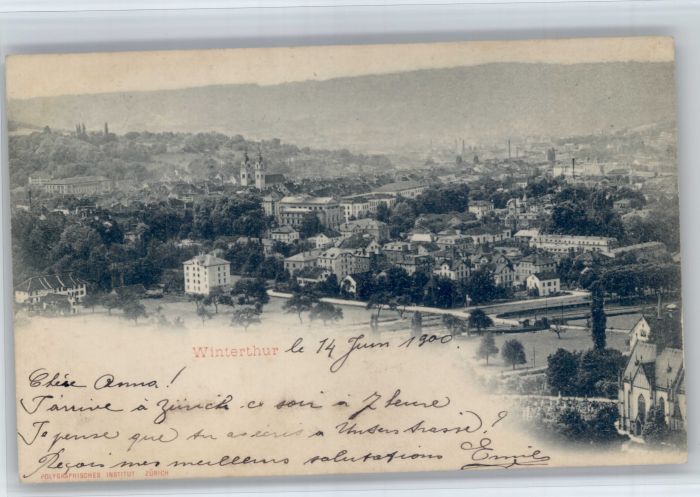 Winterthur le 14 Juin 1900.
Chère Anna!
J'arrive à Zürich ce soir à 7 heure
Je pense que tu à Unterstrasse?
Reçois mes meilleurs salutations Emil
POLYGRAPHISCHES INSTITUT ZÜRICH